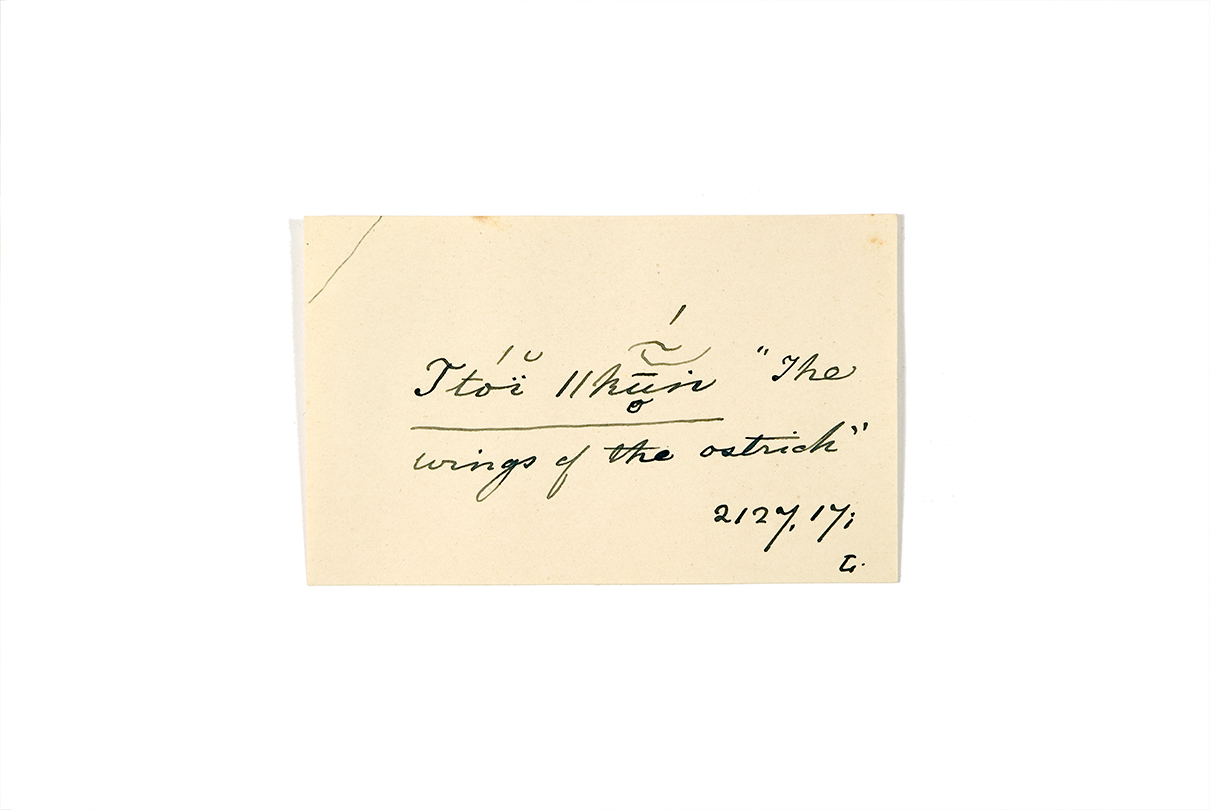 Ttóï̆ ǁkū̃́ṅ "The
wings of the ostrich"
2127, 17;
L.